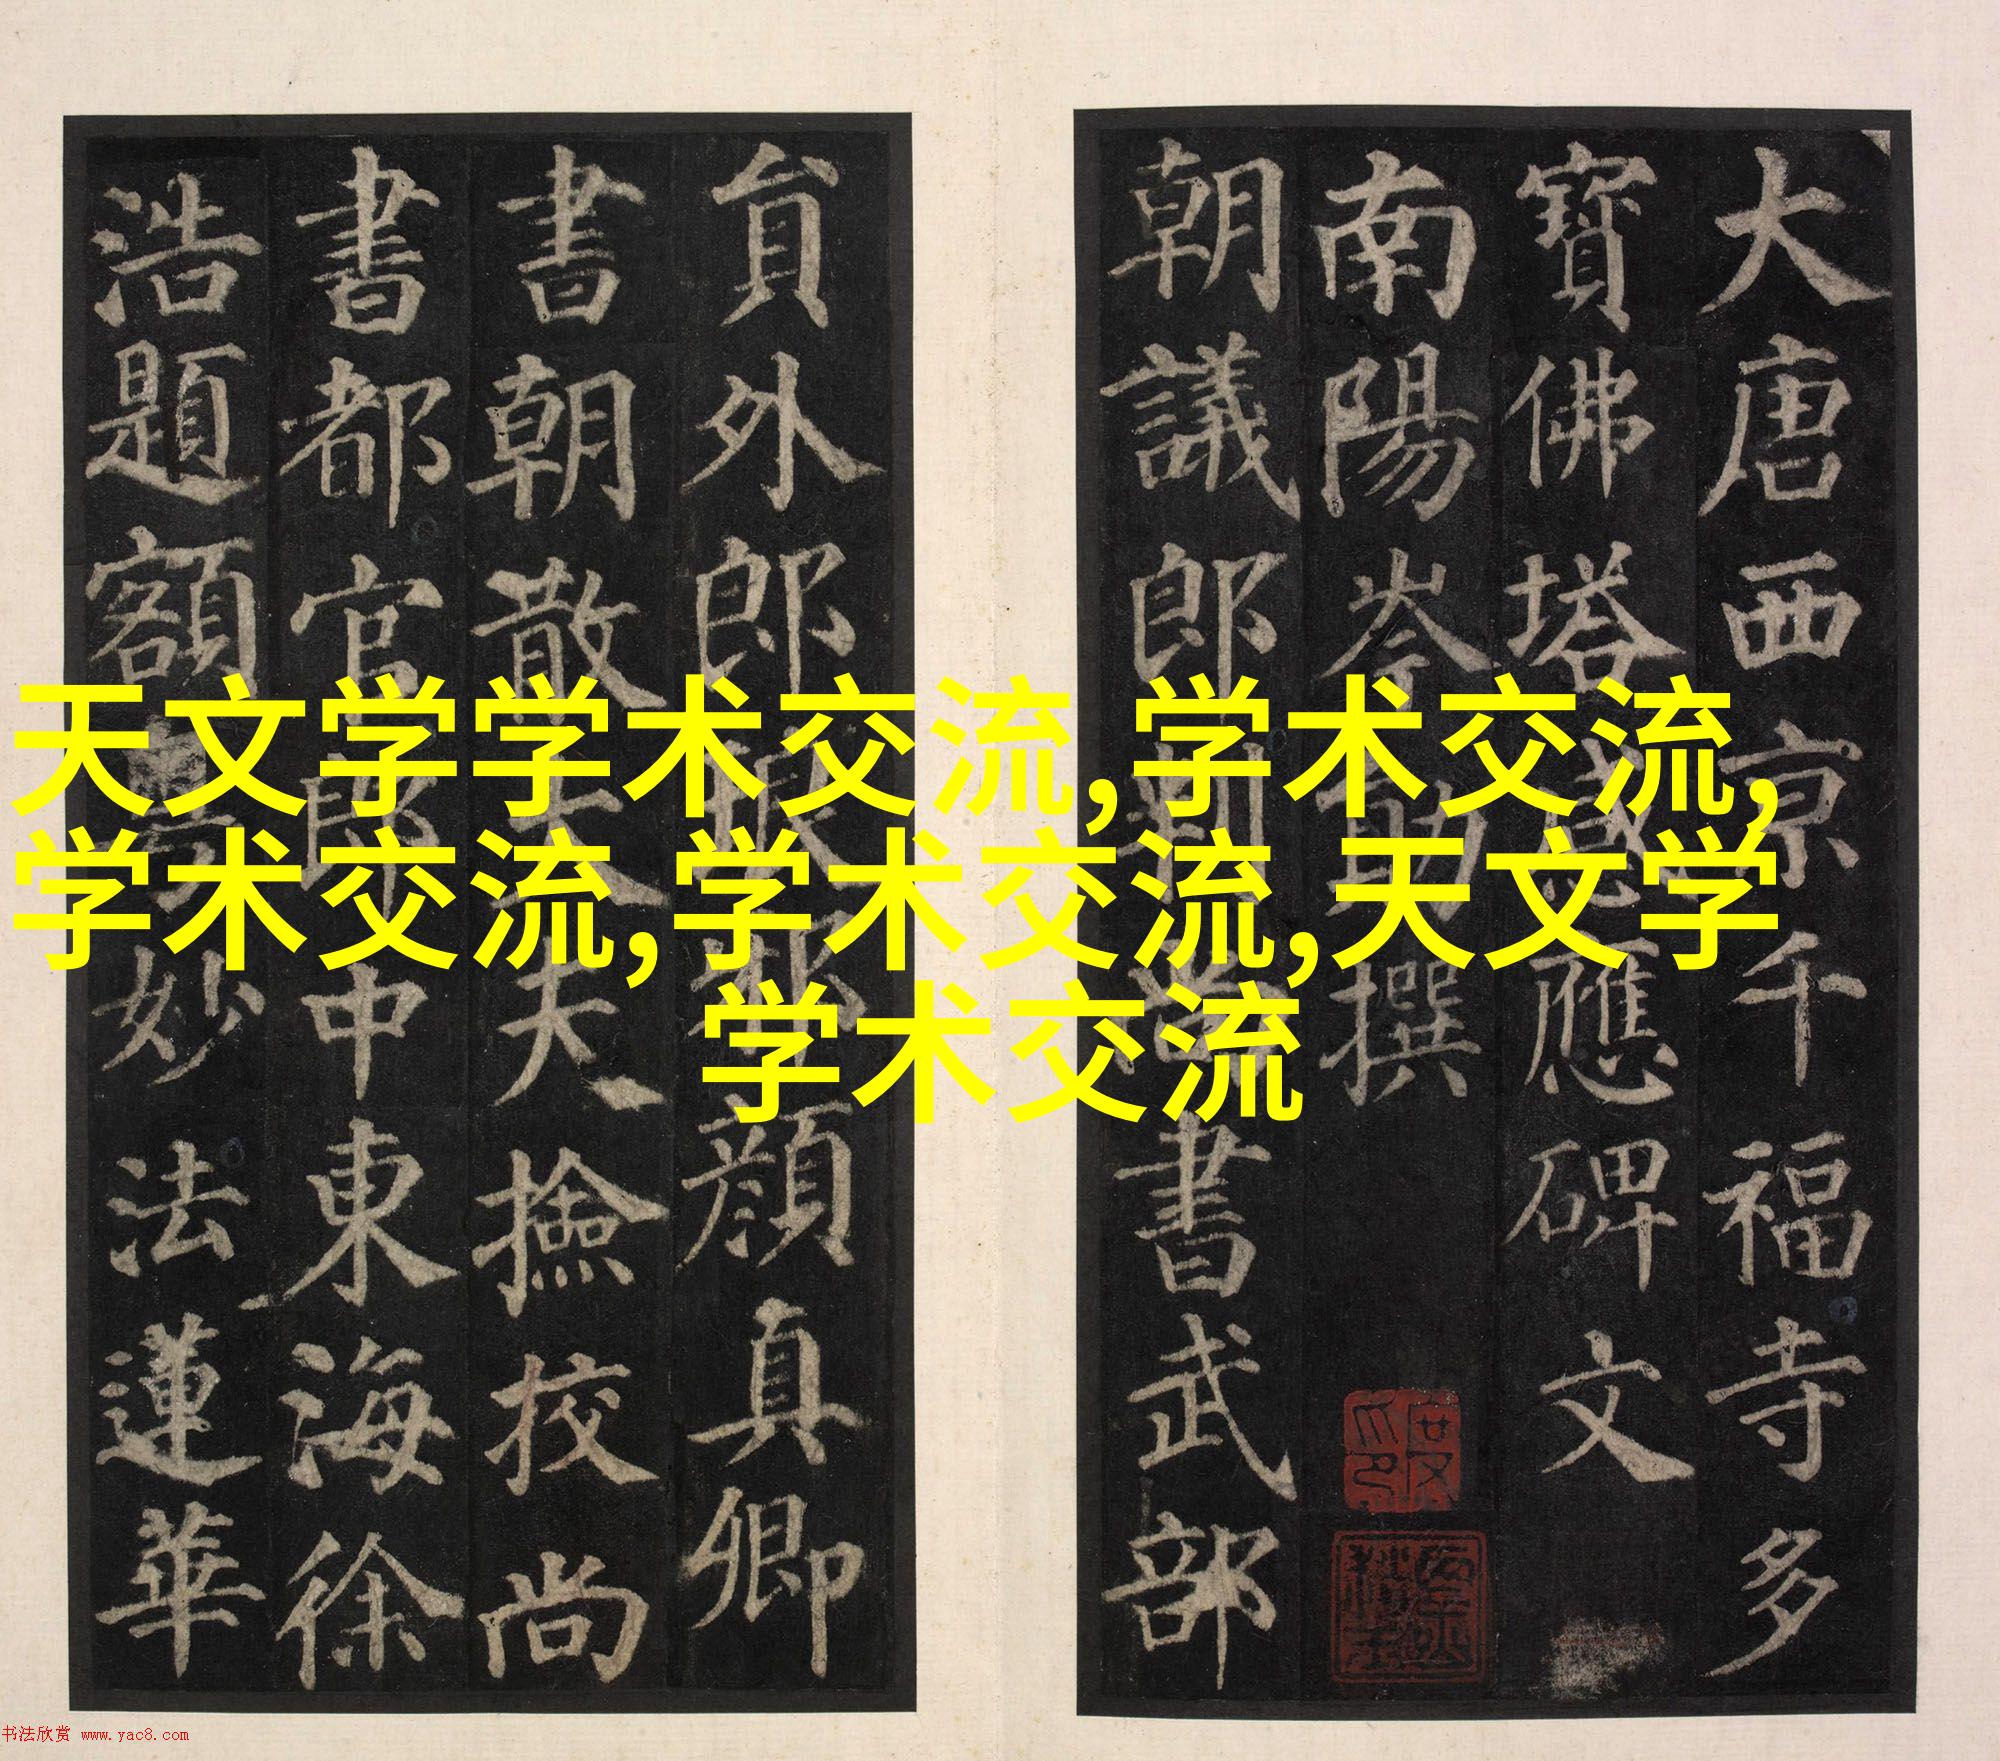 大唐西京千福寺多
寶佛塔感應碑文
南陽岑勛撰
朝議郎判書武部
貟外郎顏真卿
書朝散大夫撿挍尚
書都官郎中東海徐
浩題額妙法蓮華
天文学学术交流,学术交流,
学术交流,学术交流,天文学
学术交流
书法欣赏 www.yac8.com